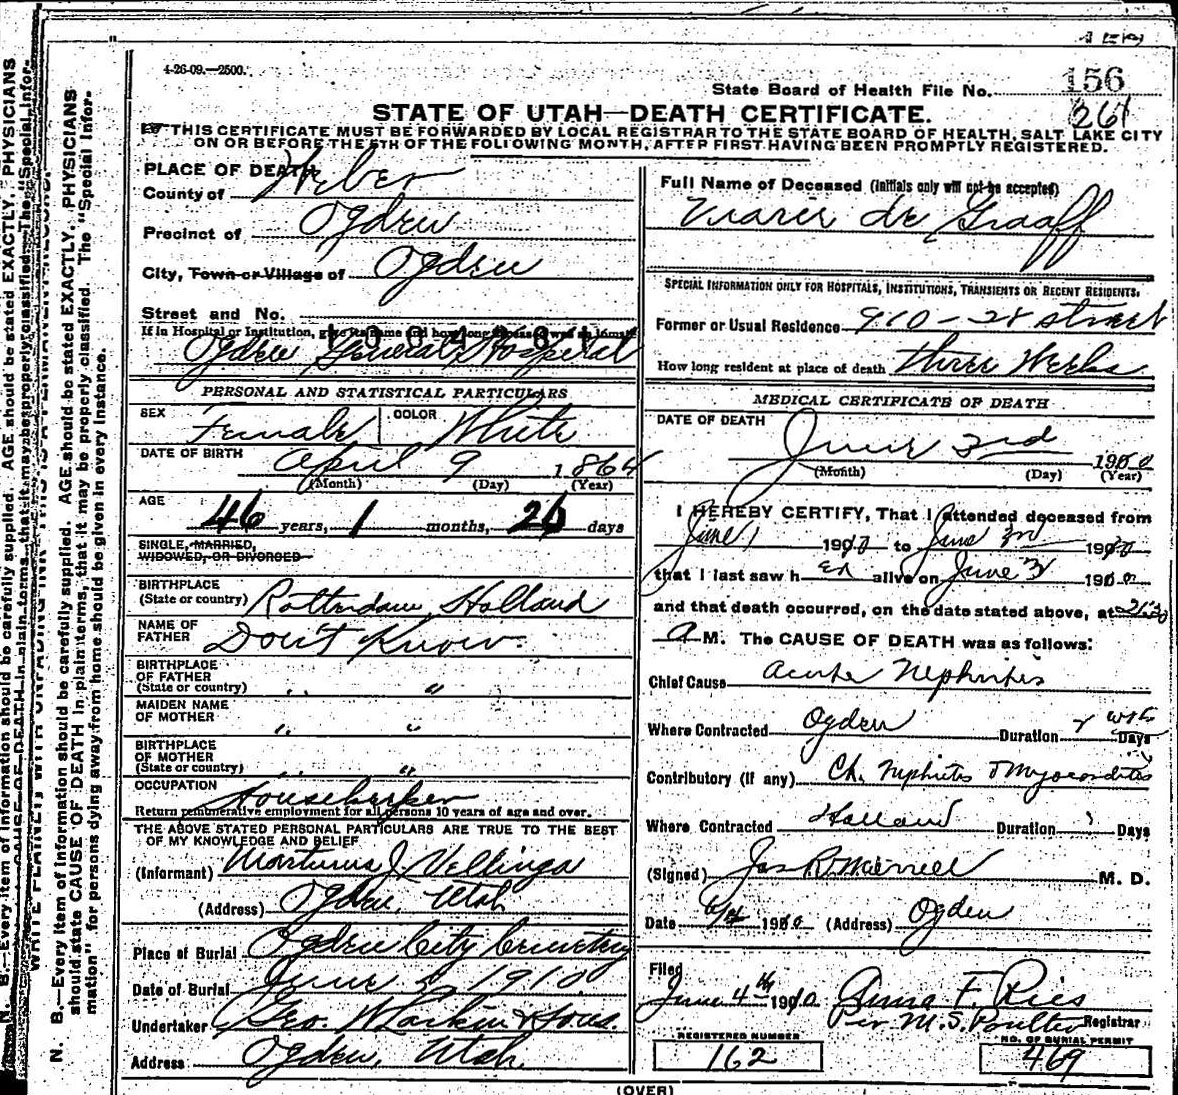 4-26-09.—2500.
State Board of Health File No. 156
261
STATE OF UTAH—DEATH CERTIFICATE.
THIS CERTIFICATE MUST BE FORWARDED BY LOCAL REGISTRAR TO THE STATE BOARD OF HEALTH, SALT LAKE CITY
ON OR BEFORE THE 5TH OF THE FOLLOWING MONTH, AFTER FIRST HAVING BEEN PROMPTLY REGISTERED.
PLACE OF DEATH
County of Weber
Precinct of Ogden
City, Town or Village of Ogden
Street and No.
If in Hospital or Institution, give its name and how long
Ogden General Hospital
PERSONAL AND STATISTICAL PARTICULARS
SEX Female COLOR White
DATE OF BIRTH April 9 1864
(Month) (Day) (Year)
AGE 46 years, 1 months, 26 days
SINGLE, MARRIED,
WIDOWED, OR DIVORCED
BIRTHPLACE
(State or country) Rotterdam, Holland
NAME OF
FATHER Don't Know.
BIRTHPLACE
OF FATHER
(State or country) " "
MAIDEN NAME
OF MOTHER " "
BIRTHPLACE
OF MOTHER
(State or country) " "
OCCUPATION Housekeeper
Return remunerative employment for all persons 10 years of age and over.
THE ABOVE STATED PERSONAL PARTICULARS ARE TRUE TO THE BEST
OF MY KNOWLEDGE AND BELIEF
(Informant) Martinus J. Vellinga
(Address) Ogden, Utah
Place of Burial Ogden City Cemetery
Date of Burial June 5, 1910
Undertaker Geo. W Larkin & Sons.
Address Ogden, Utah.
Full Name of Deceased (Initials only will not be accepted)
Marie de Graaff
SPECIAL INFORMATION ONLY FOR HOSPITALS, INSTITUTIONS, TRANSIENTS OR RECENT RESIDENTS.
Former or Usual Residence 910-28 Street
How long resident at place of death Three Weeks
MEDICAL CERTIFICATE OF DEATH
DATE OF DEATH
June 3rd 1910
(Month) (Day) (Year)
I HEREBY CERTIFY, That I attended deceased from
June 1 1910 to June 3rd 1910
that I last saw her alive on June 3 1910
and that death occurred, on the date stated above, at 2:30
A M. The CAUSE OF DEATH was as follows:
Chief Cause Acute Nephritis
Where Contracted Ogden Duration 2 wks Days
Contributory (If any) Ch. Nephritis & Myocarditis
Where Contracted Holland Duration ? Days
(Signed) Jas R Merrell M. D.
Date 6/4 1910 (Address) Ogden
Filed
June 4th 1910 Anna F. Ries
Per M. S. Poulter Registrar
REGISTERED NUMBER
162
NO. OF BURIAL PERMIT
469
(OVER)
N. B.—Every item of information should be carefully supplied. AGE should be stated EXACTLY. PHYSICIANS
should state CAUSE OF DEATH in plain terms, that it may be properly classified. The "Special Infor-
mation" for persons dying away from home should be given in every instance.